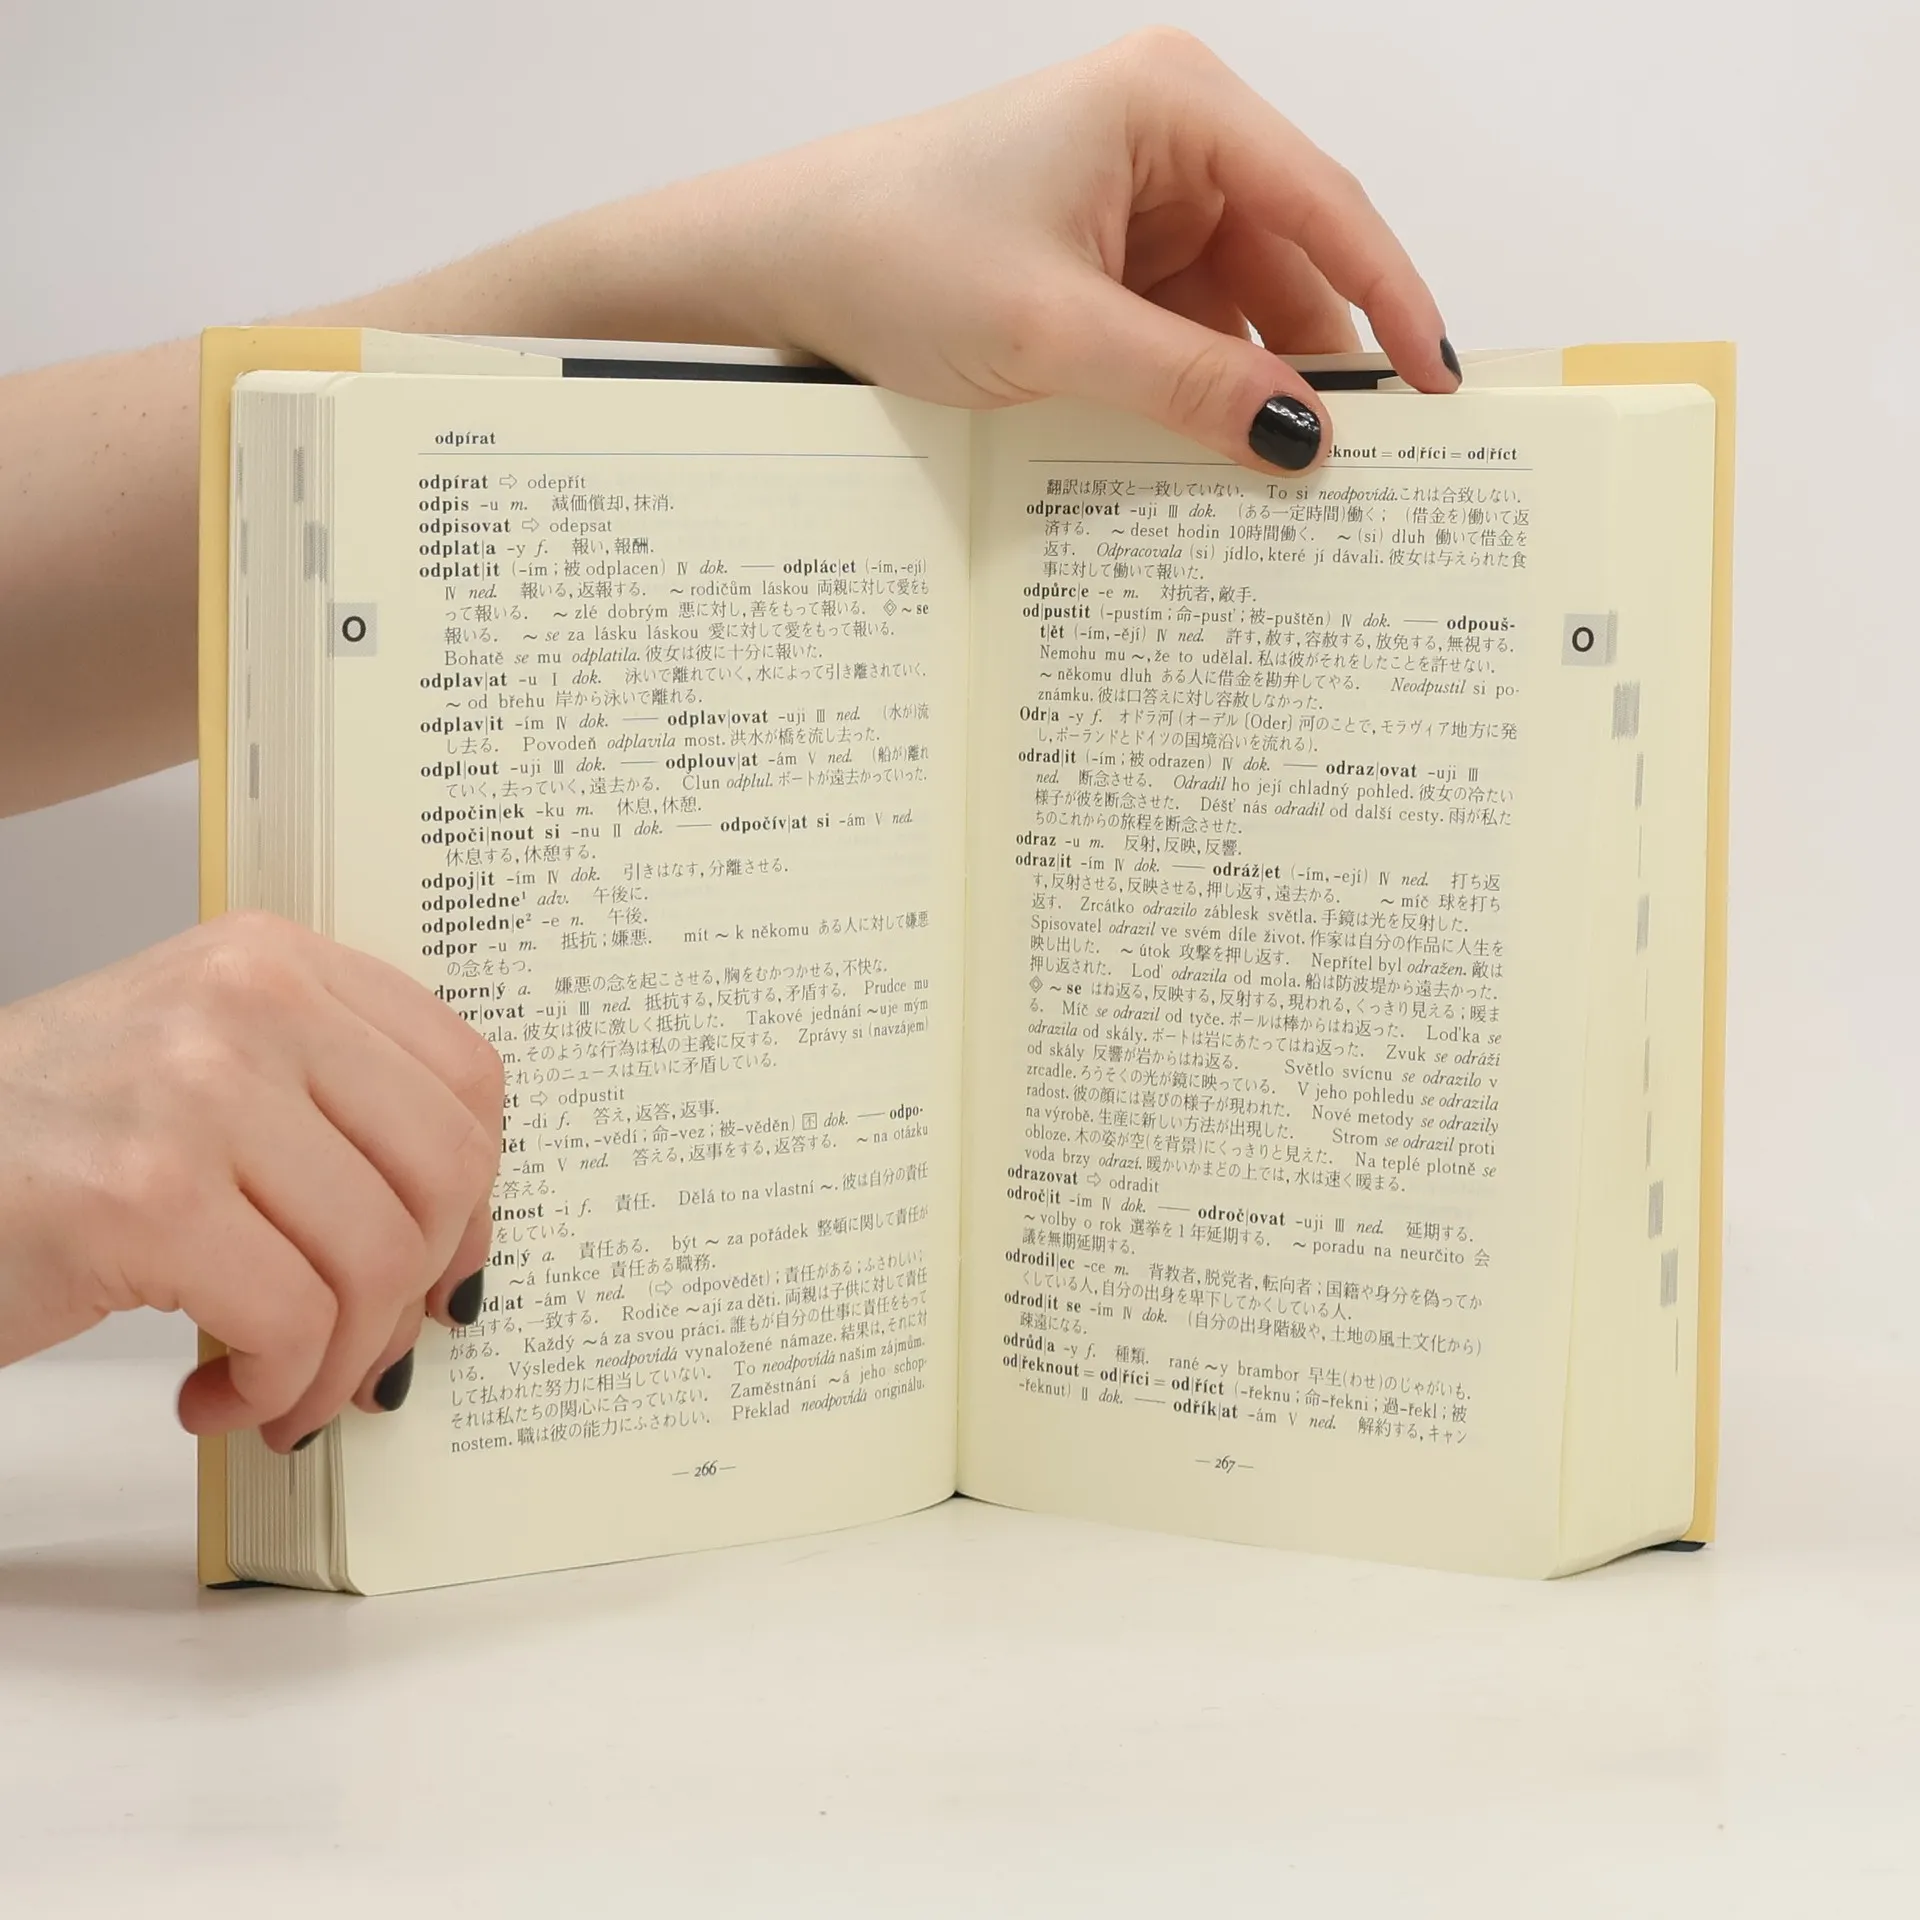 odpírat
odpírat ⇨ odepřít
odpis -u m. 減価償却,抹消.
odpisovat ⇨ odepsat
odplat|a -y f. 報い,報酬.
odplat|it (-ím;被 odplacen) Ⅳ dok. —— odplác|et (-ím,-ejí)
Ⅳ ned. 報いる,返報する. ~ rodičům láskou 両親に対して愛をも
って報いる. ~ zlé dobrým 悪に対し,善をもって報いる. ◈ ~ se
報いる. ~ se za lásku láskou 愛に対して愛をもって報いる.
Bohatě se mu odplatila. 彼女は彼に十分に報いた.
odplav|at -u Ⅰ dok. 泳いで離れていく,水によって引き離されていく.
~ od břehu 岸から泳いで離れる.
odplav|it -ím Ⅳ dok. —— odplav|ovat -uji Ⅲ ned. (水が)流
し去る. Povodeň odplavila most. 洪水が橋を流し去った.
odpl|out -uji Ⅲ dok. —— odplouv|at -ám Ⅴ ned. (船が)離れ
ていく,去っていく,遠去かる. Člun odplul. ボートが遠去かっていった.
odpočin|ek -ku m. 休息,休憩.
odpoči|nout si -nu Ⅱ dok. —— odpočív|at si -ám Ⅴ ned.
休息する,休憩する.
odpoj|it -ím Ⅳ dok. 引きはなす,分離させる.
odpoledne¹ adv. 午後に.
odpoledn|e² -e n. 午後.
odpor -u m. 抵抗;嫌悪. mít ~ k někomu ある人に対して嫌悪
の念をもつ.
dporn|ý a. 嫌悪の念を起こさせる,胸をむかつかせる,不快な.
or|ovat -uji Ⅲ ned. 抵抗する,反抗する,矛盾する. Prudce mu
vala. 彼女は彼に激しく抵抗した. Takové jednání ~uje mým
m. そのような行為は私の主義に反する. Zprávy si (navzájem)
それらのニュースは互いに矛盾している.
ět ⇨ odpustit
-di f. 答え,返答,返事.
dět (-vím,-vědí;命-vez;被-věděn) 不 dok. —— odpo-
-ám Ⅴ ned. 答える,返事をする,返答する. ~ na otázku
に答える.
dnost -i f. 責任. Dělá to na vlastní ~. 彼は自分の責任
をしている.
edn|ý a. 責任ある. být ~ za pořádek 整頓に関して責任が
~á funkce 責任ある職務.
íd|at -ám Ⅴ ned. (⇨ odpovědět);責任がある;ふさわしい;
相当する,一致する. Rodiče ~ají za děti. 両親は子供に対して責任
がある. Každý ~á za svou práci. 誰もが自分の仕事に責任をもって
いる. Výsledek neodpovídá vynaložené námaze. 結果は,それに対
して払われた努力に相当していない. To neodpovídá našim zájmům.
それは私たちの関心に合っていない. Zaměstnání ~á jeho schop-
nostem. 職は彼の能力にふさわしい. Překlad neodpovídá originálu.
— 266 —
O
eknout = od|říci = od|říct
翻訳は原文と一致していない. To si neodpovídá. これは合致しない.
odprac|ovat -uji Ⅲ dok. (ある一定時間)働く; (借金を)働いて返
済する. ~ deset hodin 10時間働く. ~ (si) dluh 働いて借金を
返す. Odpracovala (si) jídlo, které jí dávali. 彼女は与えられた食
事に対して働いて報いた.
odpůrc|e -e m. 対抗者,敵手.
od|pustit (-pustím;命-pusť;被-puštěn) Ⅳ dok. —— odpouš-
t|ět (-ím,-ějí) Ⅳ ned. 許す,赦す,容赦する,放免する,無視する.
Nemohu mu ~, že to udělal. 私は彼がそれをしたことを許せない.
~ někomu dluh ある人に借金を勘弁してやる. Neodpustil si po-
známku. 彼は口答えに対し容赦しなかった.
Odr|a -y f. オドラ河(オーデル〔Oder〕河のことで,モラヴィア地方に発
し,ポーランドとドイツの国境沿いを流れる).
odrad|it (-ím;被 odrazen) Ⅳ dok. —— odraz|ovat -uji Ⅲ
ned. 断念させる. Odradil ho její chladný pohled. 彼女の冷たい
様子が彼を断念させた. Déšť nás odradil od další cesty. 雨が私た
ちのこれからの旅程を断念させた.
odraz -u m. 反射,反映,反響.
odraz|it -ím Ⅳ dok. —— odráž|et (-ím,-ejí) Ⅳ ned. 打ち返
す,反射させる,反映させる,押し返す,遠去かる. ~ míč 球を打ち
返す. Zrcátko odrazilo záblesk světla. 手鏡は光を反射した.
Spisovatel odrazil ve svém díle život. 作家は自分の作品に人生を
映し出した. ~ útok 攻撃を押し返す. Nepřítel byl odražen. 敵は
押し返された. Loď odrazila od mola. 船は防波堤から遠去かった.
◈ ~ se はね返る,反映する,反射する,現われる,くっきり見える;暖ま
る. Míč se odrazil od tyče. ボールは棒からはね返った. Loďka se
odrazila od skály. ボートは岩にあたってはね返った. Zvuk se odráží
od skály 反響が岩からはね返る. Světlo svícnu se odrazilo v
zrcadle. ろうそくの光が鏡に映っている. V jeho pohledu se odrazila
radost. 彼の顔には喜びの様子が現われた. Nové metody se odrazily
na výrobě. 生産に新しい方法が出現した. Strom se odrazil proti
obloze. 木の姿が空(を背景)にくっきりと見えた. Na teplé plotně se
voda brzy odrazí. 暖かいかまどの上では,水は速く暖まる.
odrazovat ⇨ odradit
odroč|it -ím Ⅳ dok. —— odroč|ovat -uji Ⅲ ned. 延期する.
~ volby o rok 選挙を1年延期する. ~ poradu na neurčito 会
議を無期延期する.
odrodil|ec -ce m. 背教者,脱党者,転向者;国籍や身分を偽ってか
くしている人,自分の出身を卑下してかくしている人.
odrod|it se -ím Ⅳ dok. (自分の出身階級や,土地の風土文化から)
疎遠になる.
odrůd|a -y f. 種類. rané ~y brambor 早生(わせ)のじゃがいも.
od|řeknout = od|říci = od|říct (-řeknu;命-řekni;過-řekl;被
-řeknut) Ⅱ dok. —— odřík|at -ám Ⅴ ned. 解約する,キャン
— 267 —
O